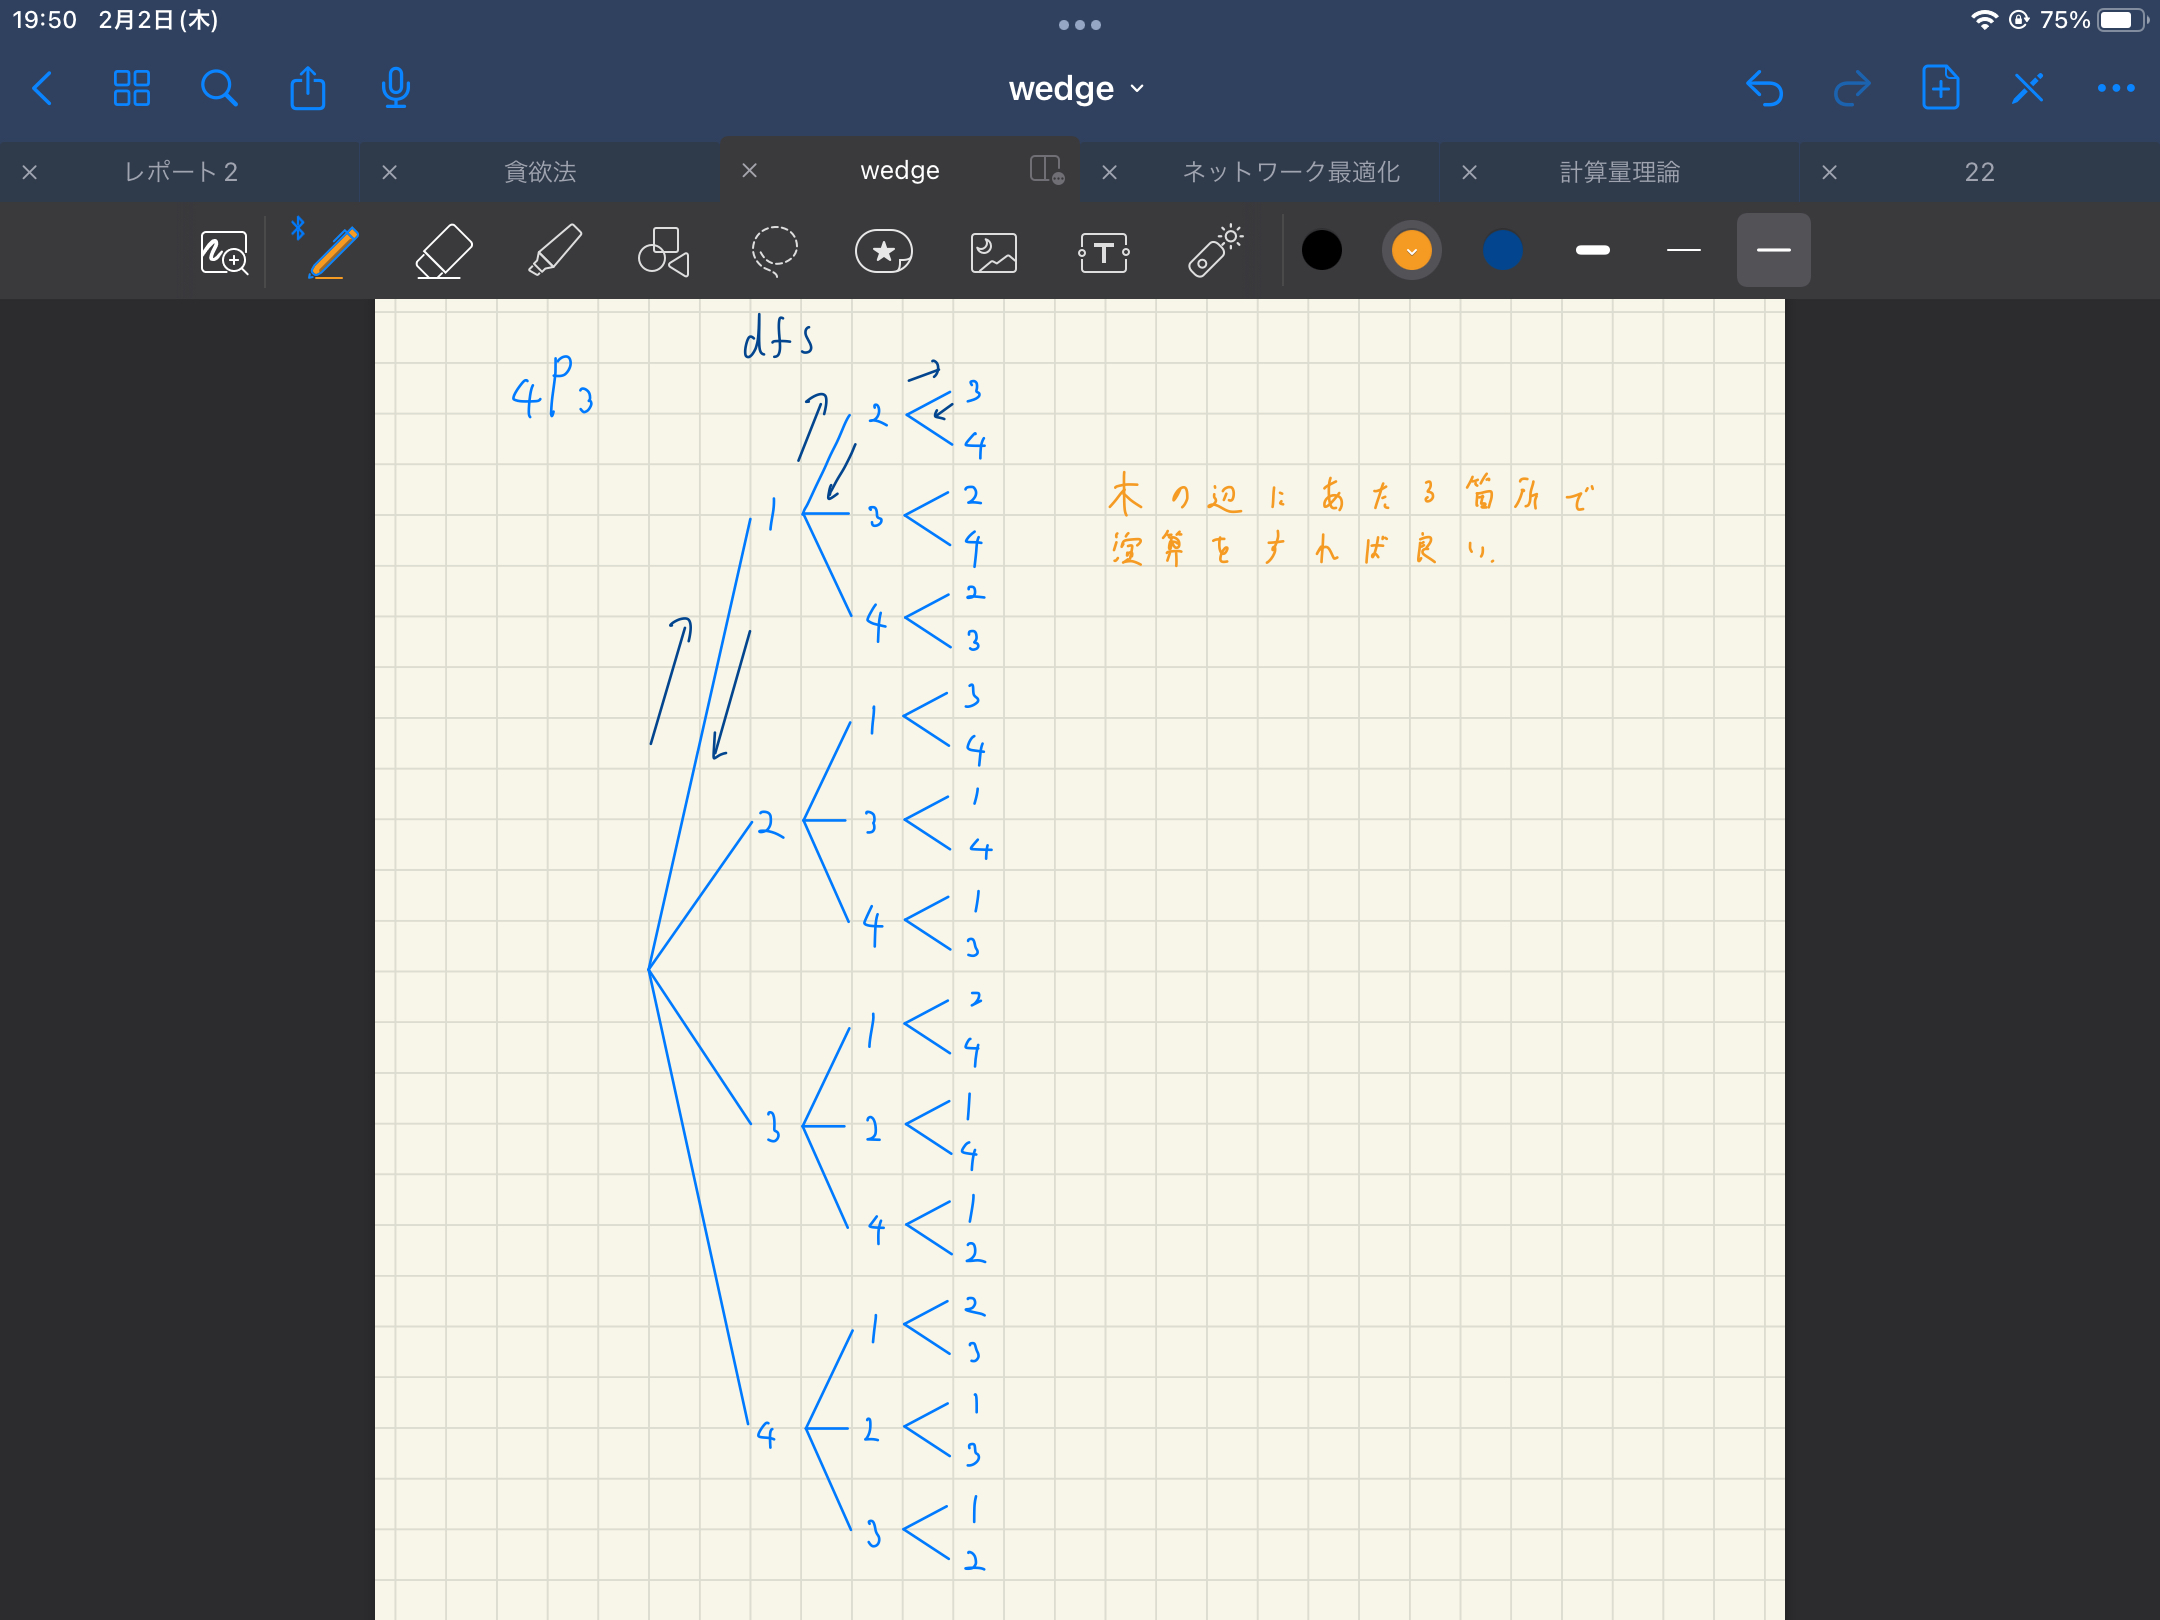 19:50 2月2日(木)
75%
wedge
レポート2
貪欲法
wedge
ネットワーク最適化
計算量理論
22
dfs
4P3
2 3
4
1 3 2
4
4 2
3
1 3
4
2 3 1
4
4 1
3
1 2
4
3 2 1
4
4 1
2
1 2
3
4 2 1
3
3 1
2
木の辺にあたる箇所で
演算をすれば良い.